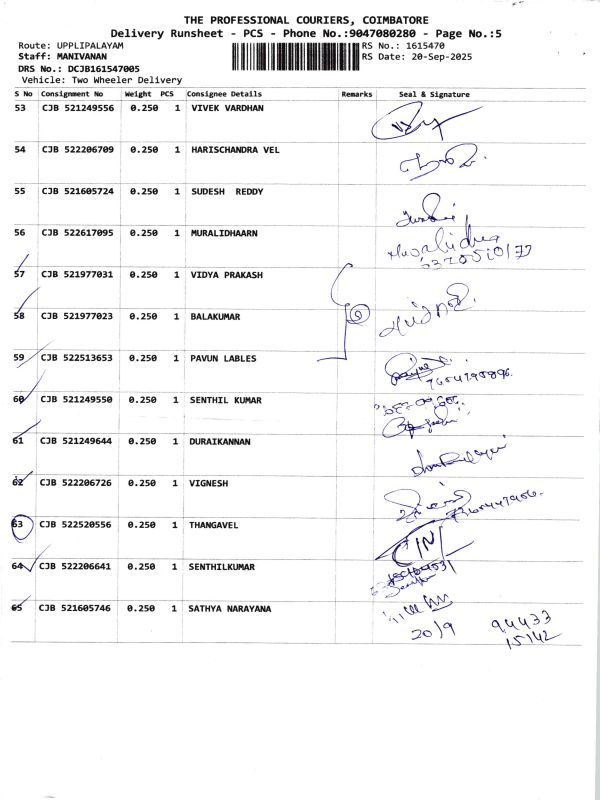 THE PROFESSIONAL COURIERS, COIMBATORE
Delivery Runsheet - PCS - Phone No.:9047080280 - Page No.:5
Route: UPPLIPALAYAM RS No.: 1615470
Staff: MANIVANAN RS Date: 20-Sep-2025
DRS No.: DCJB161547005
Vehicle: Two Wheeler Delivery
S No Consignment No Weight PCS Consignee Details Remarks Seal & Signature
53 CJB 521249556 0.250 1 VIVEK VARDHAN
54 CJB 522206709 0.250 1 HARISCHANDRA VEL
55 CJB 521605724 0.250 1 SUDESH REDDY
56 CJB 522617095 0.250 1 MURALIDHAARN
57 CJB 521977031 0.250 1 VIDYA PRAKASH
58 CJB 521977023 0.250 1 BALAKUMAR
59 CJB 522513653 0.250 1 PAVUN LABLES
60 CJB 521249550 0.250 1 SENTHIL KUMAR
61 CJB 521249644 0.250 1 DURAIKANNAN
62 CJB 522206726 0.250 1 VIGNESH
63 CJB 522520556 0.250 1 THANGAVEL
64 CJB 522206641 0.250 1 SENTHILKUMAR
65 CJB 521605746 0.250 1 SATHYA NARAYANA
20/9 94433
15142